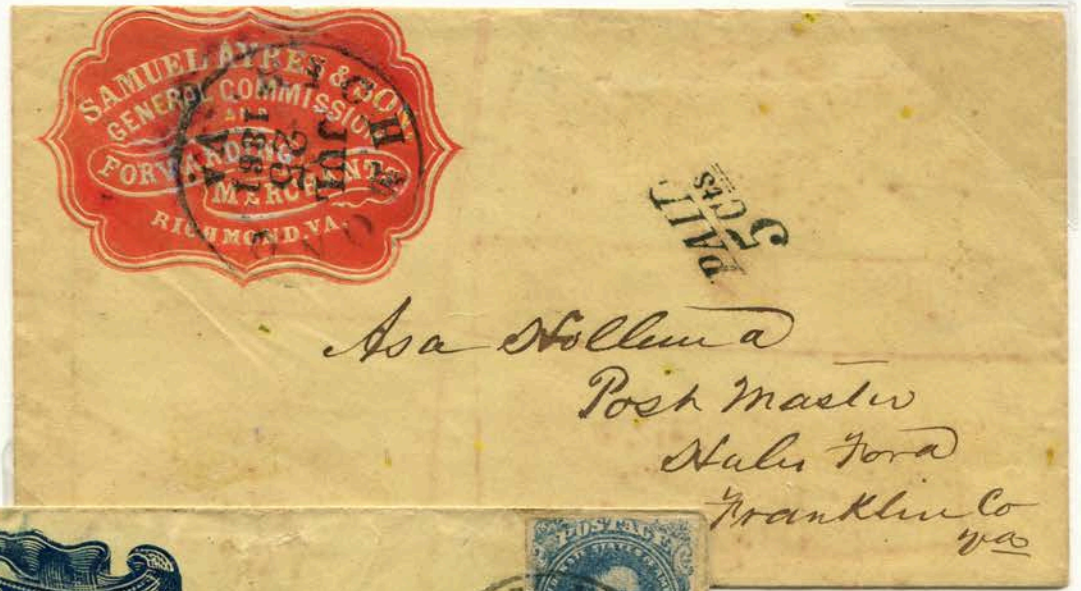 SAMUEL AYRES & SON.
GENERAL COMMISSION
AND
FORWARDING
MERCHANTS
RICHMOND.VA.
RICHMOND VA.
JUL
25
1861
PAID
5 Cts
Asa Holland
Post Master
Hales Ford
Franklin Co
Va
POSTAGE